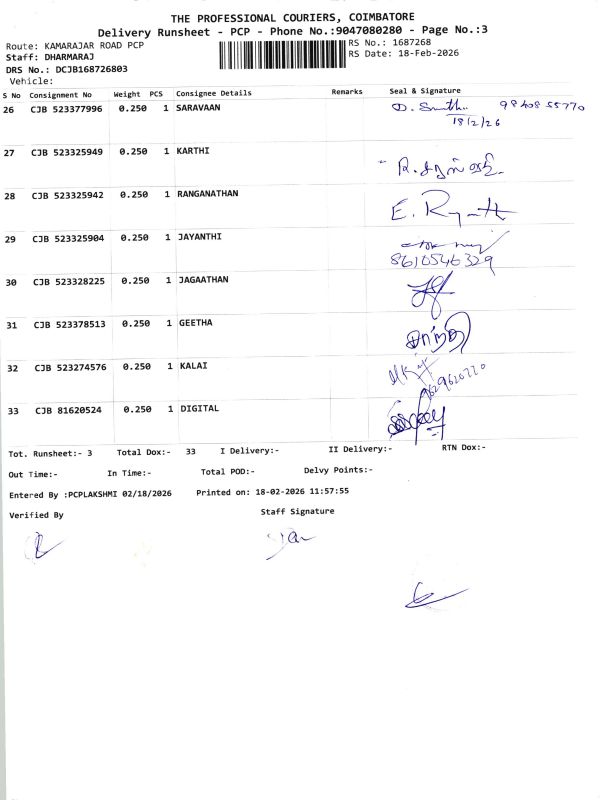 THE PROFESSIONAL COURIERS, COIMBATORE
Delivery Runsheet - PCP - Phone No.:9047080280 - Page No.:3
Route: KAMARAJAR ROAD PCP RS No.: 1687268
Staff: DHARMARAJ RS Date: 18-Feb-2026
DRS No.: DCJB168726803
Vehicle:
S No Consignment No Weight PCS Consignee Details Remarks Seal & Signature
26 CJB 523377996 0.250 1 SARAVAAN 98408 55770
18/2/26
27 CJB 523325949 0.250 1 KARTHI
28 CJB 523325942 0.250 1 RANGANATHAN
29 CJB 523325904 0.250 1 JAYANTHI
8610546329
30 CJB 523328225 0.250 1 JAGAATHAN
31 CJB 523378513 0.250 1 GEETHA
32 CJB 523274576 0.250 1 KALAI
33 CJB 81620524 0.250 1 DIGITAL
Tot. Runsheet:- 3 Total Dox:- 33 I Delivery:- II Delivery:- RTN Dox:-
Out Time:- In Time:- Total POD:- Delvy Points:-
Entered By :PCPLAKSHMI 02/18/2026 Printed on: 18-02-2026 11:57:55
Verified By Staff Signature